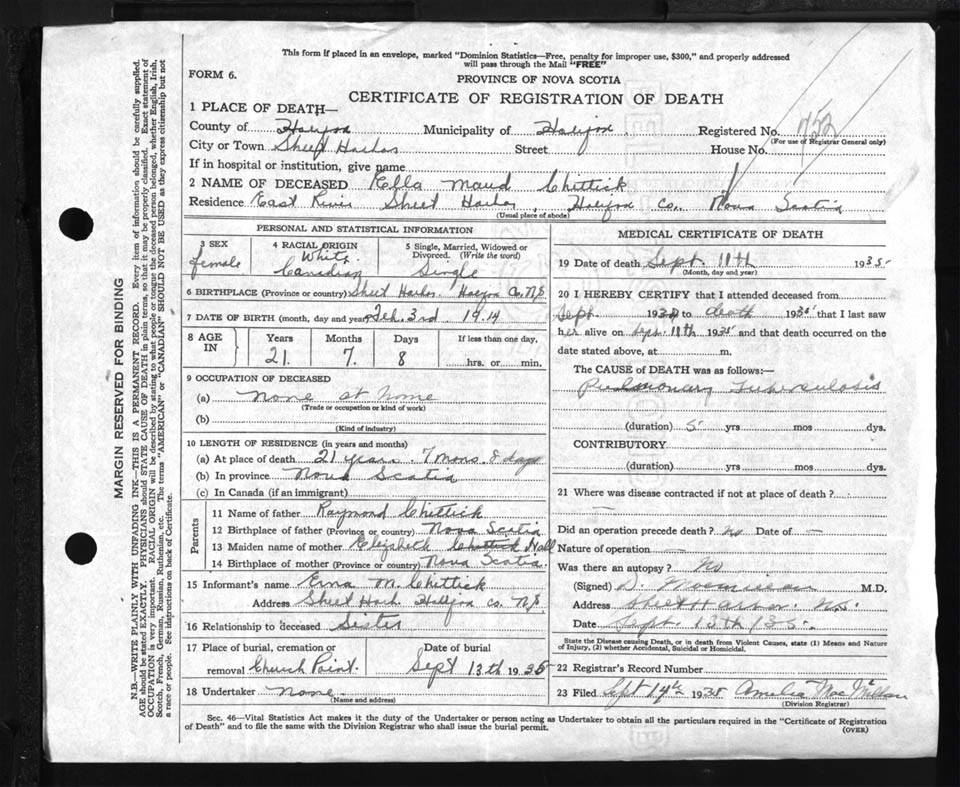 This form if placed in an envelope, marked "Dominion Statistics—Free, penalty for improper use, $300," and properly addressed
will pass through the Mail "FREE"
FORM 6.
PROVINCE OF NOVA SCOTIA
CERTIFICATE OF REGISTRATION OF DEATH
1 PLACE OF DEATH—
County of Halifax Municipality of Halifax Registered No. 753
(For use of Registrar General only)
City or Town Sheet Harbor Street House No.
If in hospital or institution, give name
2 NAME OF DECEASED Ella Maud Chittick
Residence East River Sheet Harbor, Halifax Co. Nova Scotia
(Usual place of abode)
PERSONAL AND STATISTICAL INFORMATION
3 SEX female
4 RACIAL ORIGIN White Canadian
5 Single, Married, Widowed or Divorced. (Write the word) Single
6 BIRTHPLACE (Province or country) Sheet Harbor Halifax Co. N.S.
7 DATE OF BIRTH (month, day and year) Feb. 3rd 1914
8 AGE IN Years 21. Months 7. Days 8 If less than one day, hrs. or min.
9 OCCUPATION OF DECEASED
(a) None at home
(Trade or occupation or kind of work)
(b)
(Kind of industry)
10 LENGTH OF RESIDENCE (in years and months)
(a) At place of death 21 years 7 mons. 8 days
(b) In province Nova Scotia
(c) In Canada (if an immigrant)
Parents
11 Name of father Raymond Chittick
12 Birthplace of father (Province or country) Nova Scotia
13 Maiden name of mother Elizabeth Chittick Hall
14 Birthplace of mother (Province or country) Nova Scotia
15 Informant's name Erna M. Chittick
Address Sheet Harb. Halifax Co. N.S.
16 Relationship to deceased Sister
17 Place of burial, cremation or removal Church Point. Date of burial Sept 13th 1935
18 Undertaker None
(Name and address)
MEDICAL CERTIFICATE OF DEATH
19 Date of death Sept. 11th 1935
(Month, day and year)
20 I HEREBY CERTIFY that I attended deceased from
Sept. to death 1935 that I last saw
her alive on Sept. 11th 1935 and that death occurred on
date stated above, at m.
The CAUSE of DEATH was as follows:—
Pulmonary Tuberculosis
(duration) 5 yrs mos dys.
CONTRIBUTORY
(duration) yrs mos dys.
21 Where was disease contracted if not at place of death?
Did an operation precede death? no Date of —
Nature of operation —
Was there an autopsy? No
(Signed) D. M.D.
Address Sheet Harbor. N.S.
Date Sept. 13th / 35.
State the Disease causing Death, or in death from Violent Causes, state (1) Means and Nature
of Injury, (2) whether Accidental, Suicidal or Homicidal.
22 Registrar's Record Number
23 Filed Sept 14th 1935 Amelia MacMillan
(Division Registrar)
Sec. 46—Vital Statistics Act makes it the duty of the Undertaker or person acting as Undertaker to obtain all the particulars required in the "Certificate of Registration
of Death" and to file the same with the Division Registrar who shall issue the burial permit.
(OVER)
MARGIN RESERVED FOR BINDING
N.B.—WRITE PLAINLY WITH UNFADING INK—THIS IS A PERMANENT RECORD. Every item of information should be carefully supplied.
AGE should be stated EXACTLY. PHYSICIANS should STATE CAUSE OF DEATH in plain terms, so that it may be properly classified. Exact statement of
OCCUPATION is very important. RACIAL ORIGIN will be described by stating to what people or tongue the deceased person belonged, whether English, Irish,
Scotch, French, German, Russian, Ruthenian, etc. The terms "AMERICAN" or "CANADIAN" SHOULD NOT BE USED as they express citizenship but not
a race or people. See instructions on back of Certificate.